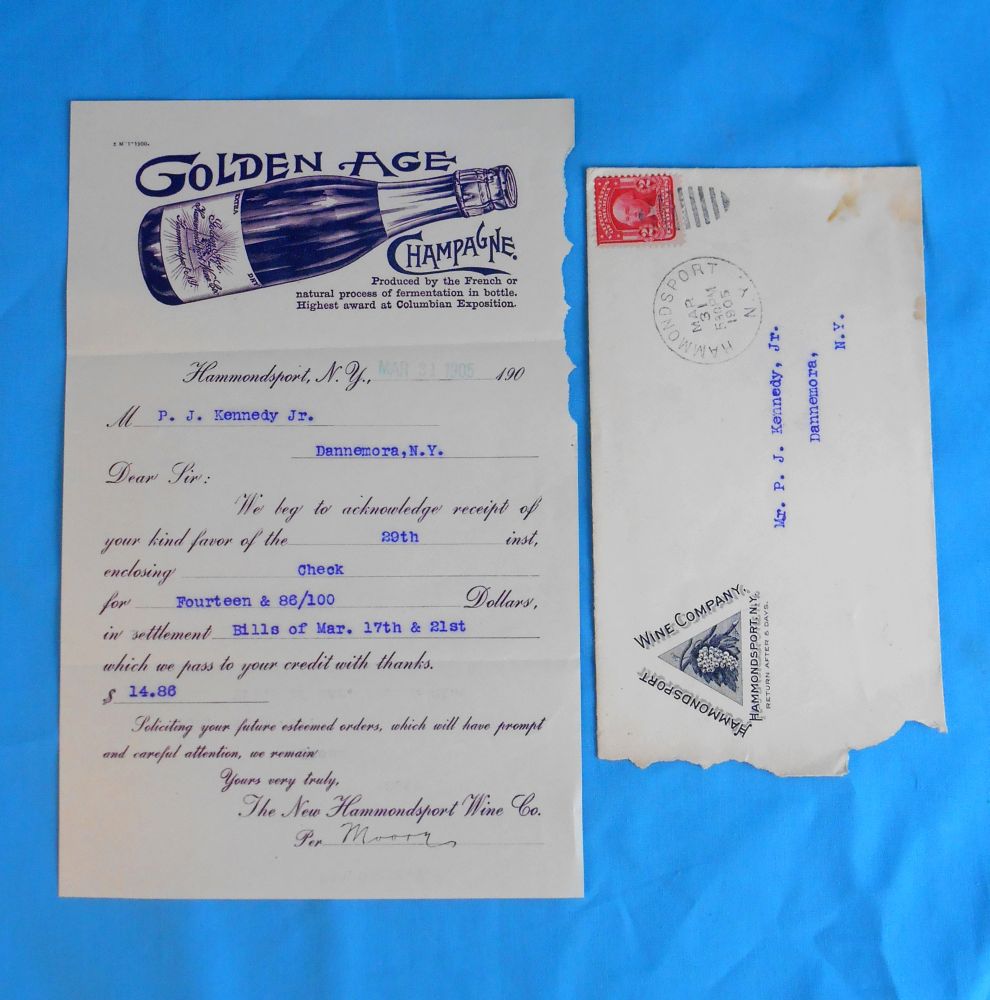 GOLDEN AGE
EXTRA
DRY
CHAMPAGNE.
Produced by the French or
natural process of fermentation in bottle.
Highest award at Columbian Exposition.
Hammondsport, N. Y., MAR 31 1905 190
M P. J. Kennedy Jr.
Dannemora, N.Y.
Dear Sir:
We beg to acknowledge receipt of
your kind favor of the 29th inst,
enclosing Check
for Fourteen & 86/100 Dollars,
in settlement Bills of Mar. 17th & 21st
which we pass to your credit with thanks.
$ 14.86
Soliciting your future esteemed orders, which will have prompt
and careful attention, we remain
Yours very truly,
The New Hammondsport Wine Co.
Per
HAMMONDSPORT N.Y.
MAR
31
1905
Mr. P. J. Kennedy, Jr.
Dannemora,
N.Y.
WINE COMPANY,
HAMMONDSPORT
HAMMONDSPORT, N.Y.
RETURN AFTER 5 DAYS.